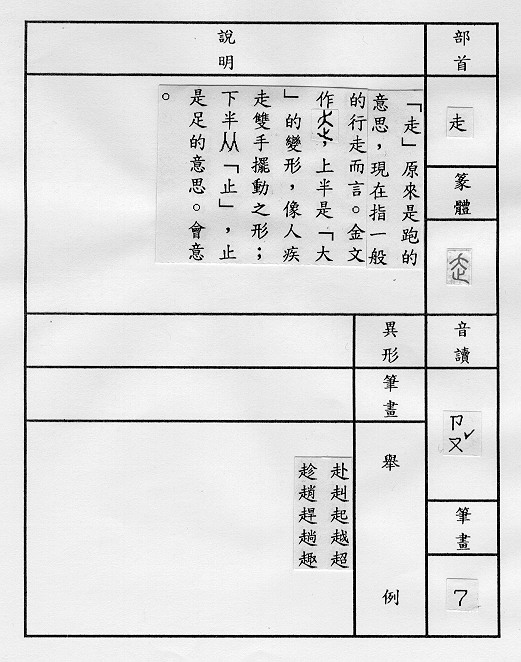 部首
走
篆體
音讀
ㄗㄡˇ
筆畫
7
說明
「走」原來是跑的
意思，現在指一般
的行走而言。金文
作，上半是「大
」的變形，像人疾
走雙手擺動之形；
下半从「止」，止
是足的意思。會意
。
異形
筆畫
舉例
赴赳起越超
趁趙趕趟趣